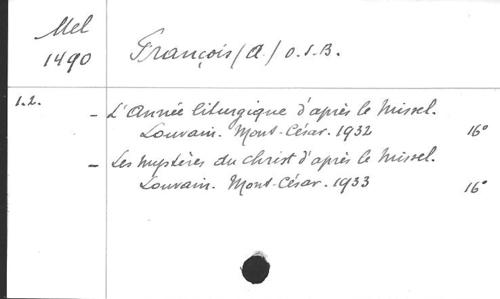 Mel
1490
François (A.) O.S.B.
1.2.
- L'Année liturgique d'après le Missel.
Louvain. Mont-César. 1932 16°
- Les mystères du Christ d'après le Missel.
Louvain. Mont-César. 1933 16°